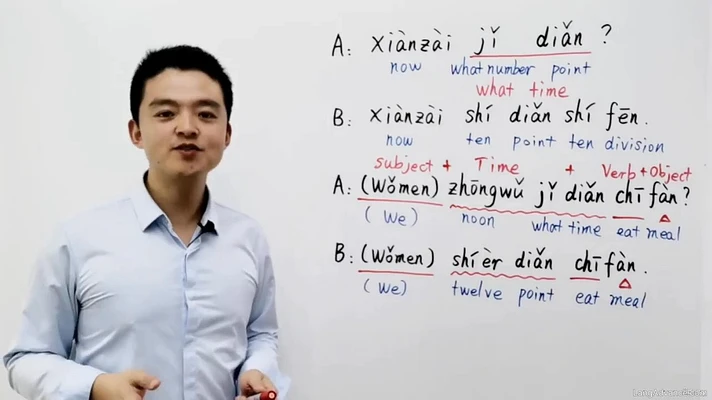 A: Xiànzài jǐ diǎn ?
now what number point
what time
B: Xiànzài shí diǎn shí fēn.
now ten point ten division
subject + Time + Verb + Object
A: (Wǒmen) zhōngwǔ jǐ diǎn chī fàn?
(We) noon what time eat meal
B: (Wǒmen) shíèr diǎn chīfàn.
(We) twelve point eat meal